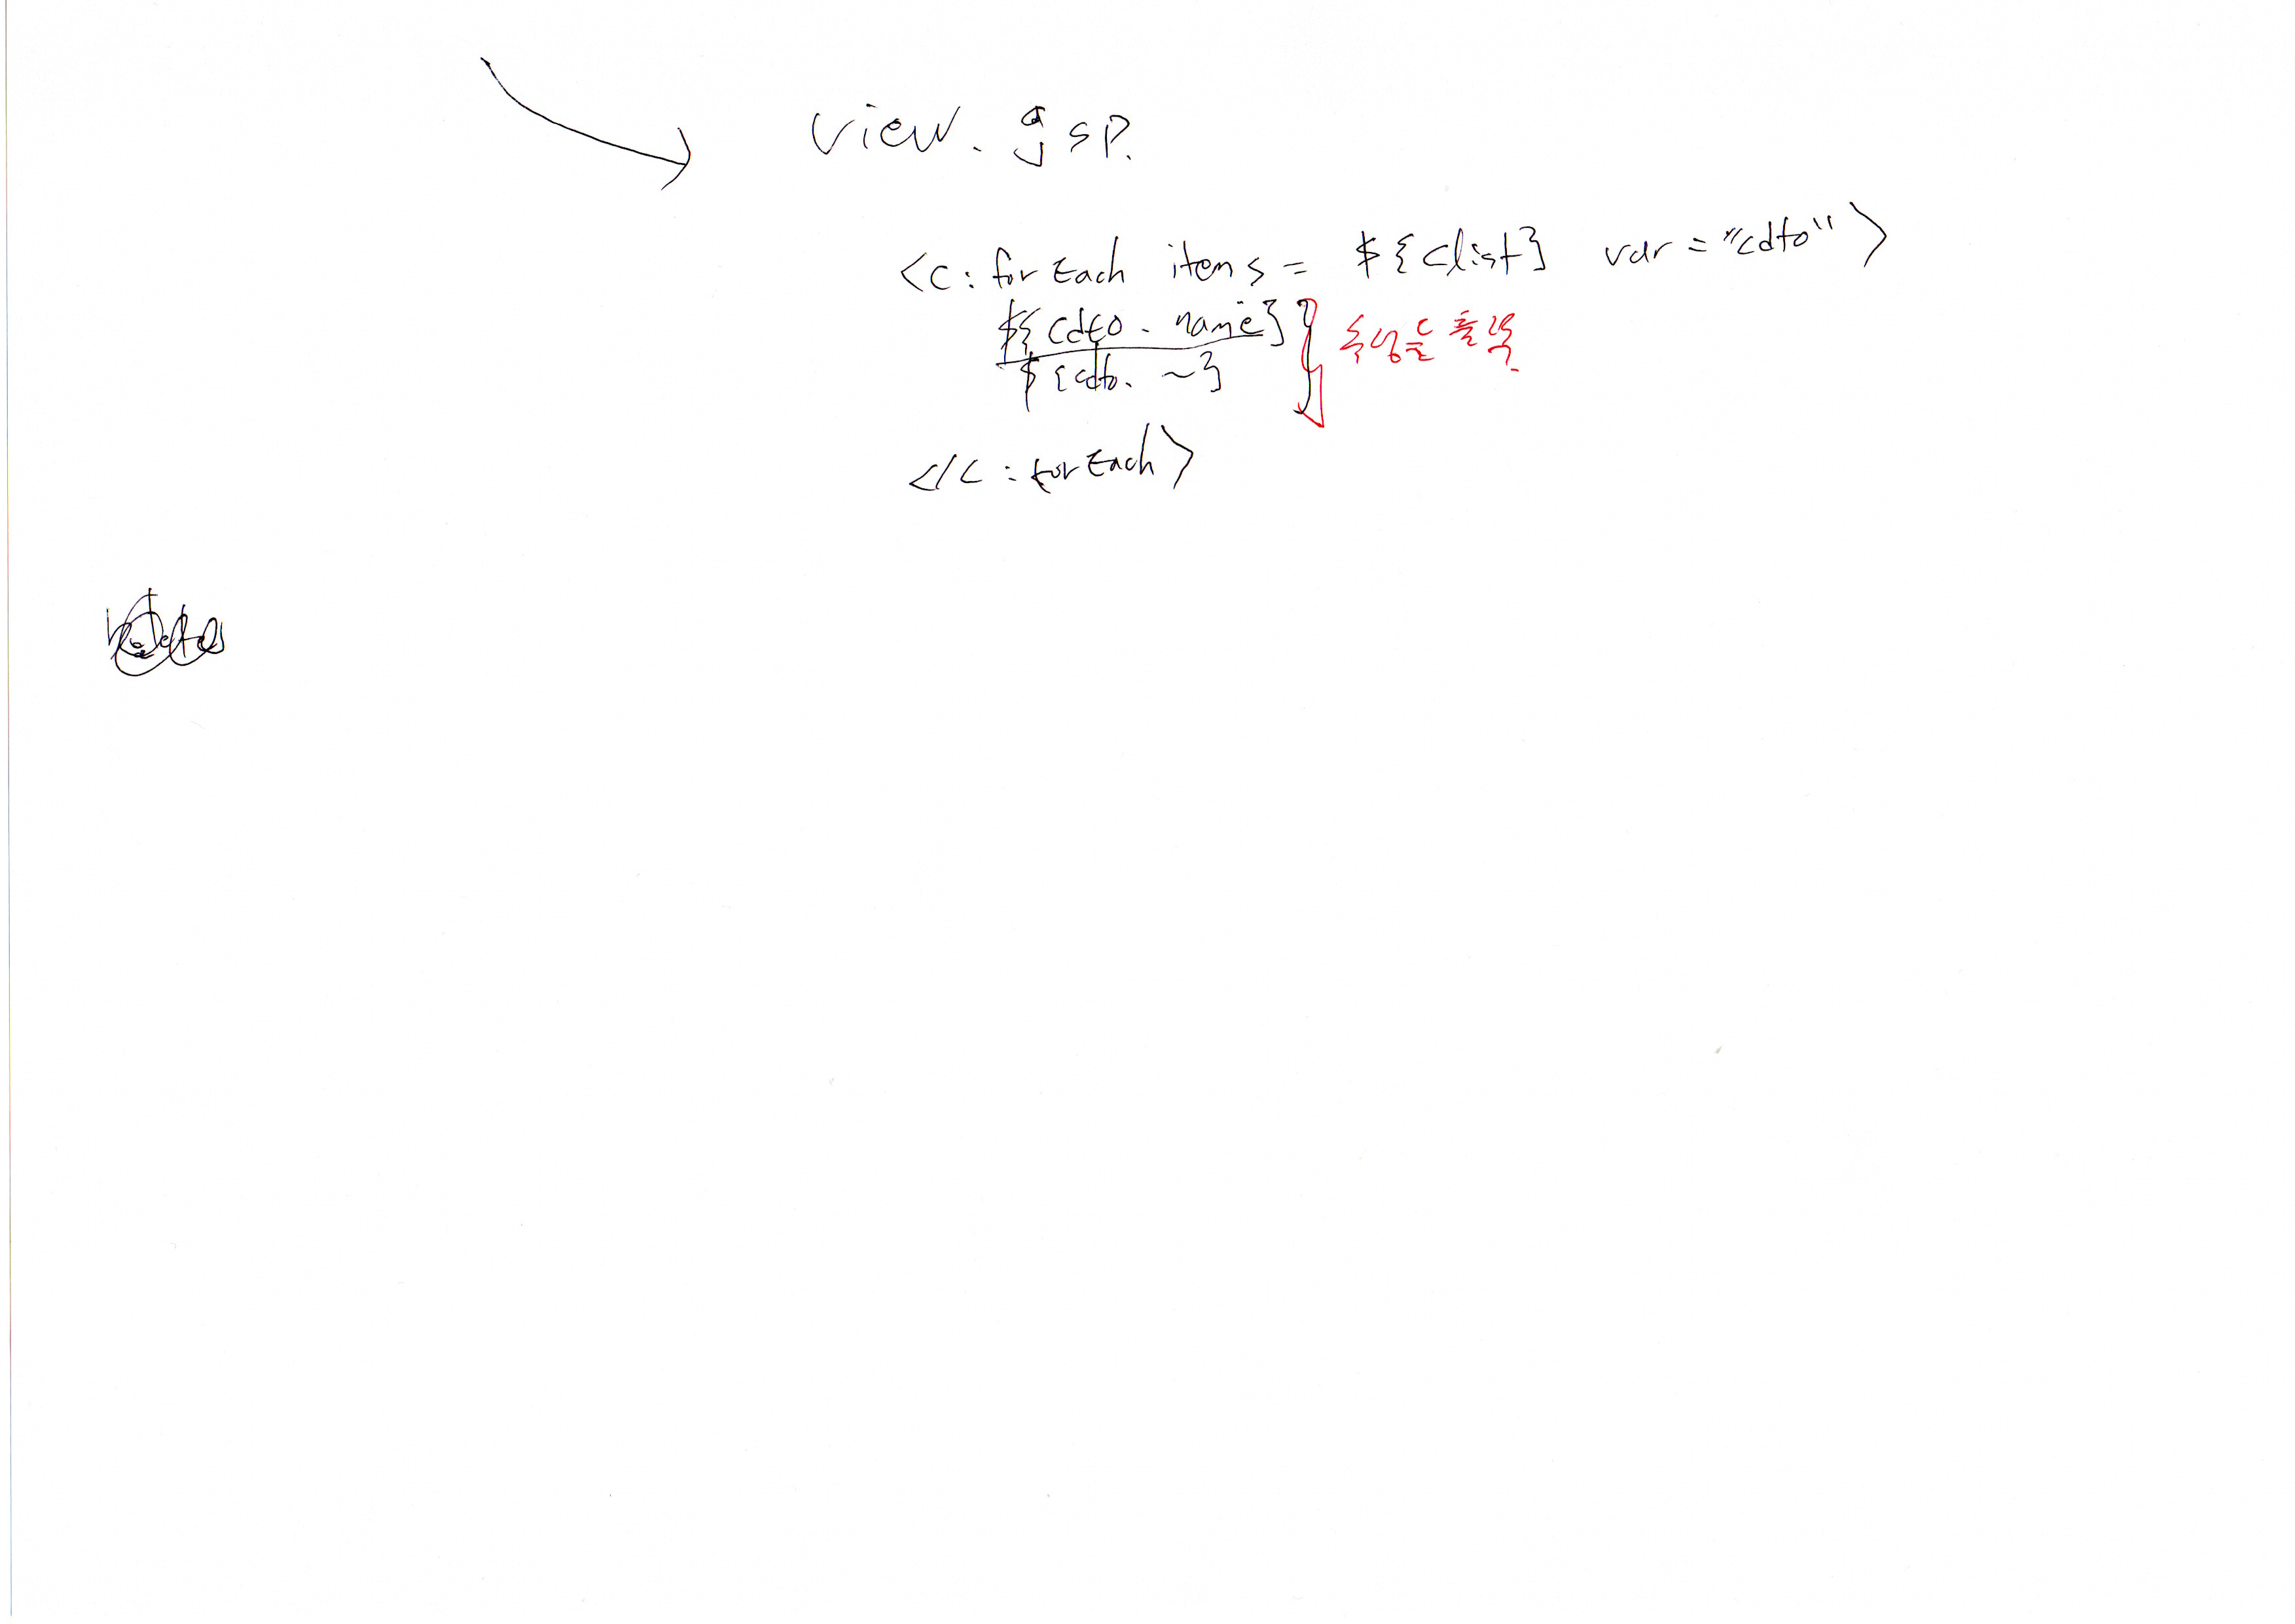 view.jsp.
<c:forEach items = ${clist} var = "cdto">
${cdto.name}
${cdto. ~} 속성을 출력.
</c:forEach>